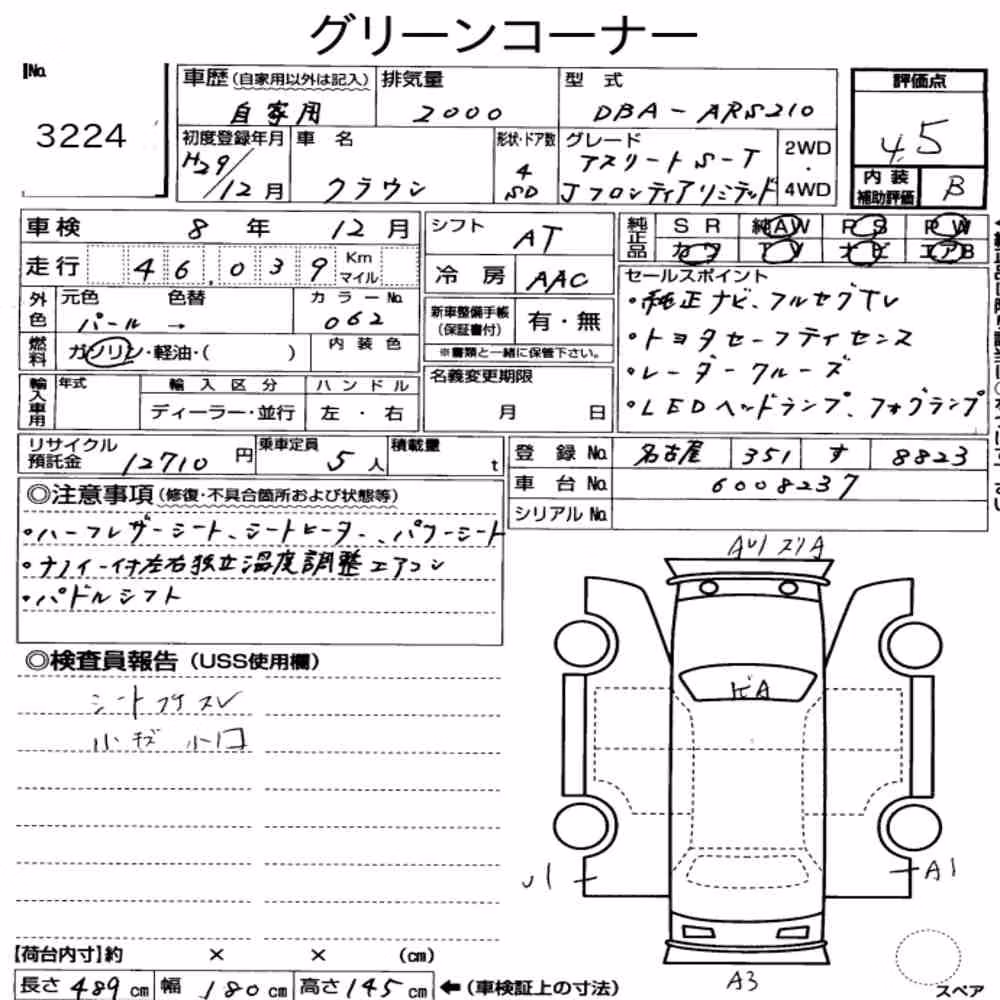 グリーンコーナー
No. 3224
車歴(自家用以外は記入) 自家用
排気量 2000
型式 DBA-ARS210
評価点 4.5
内装補助評価 B
初度登録年月 H29/12月
車名 クラウン
形状・ドア数 4 SD
グレード アスリートS-T Jフロンティアリミテッド
2WD・4WD
車検 8年 12月
走行 46,039 Km マイル
外色 元色 色替 パール →
カラーNo. 062
燃料 ガソリン・軽油・( )
内装色
シフト AT
冷房 AAC
新車整備手帳(保証書付) 有・無
※書類と一緒に保管下さい。
純正品 SR 純AW PS PW
カワ TV ナビ エアB
セールスポイント
・純正ナビ、フルセグTV
・トヨタセーフティセンス
・レーダークルーズ
・LEDヘッドランプ、フォグランプ
輸入車用 年式 輸入区分 ハンドル
ディーラー・並行 左・右
名義変更期限 月 日
リサイクル預託金 12710円
乗車定員 5人
積載量 t
登録No. 名古屋 351 す 8823
車台No. 6008237
シリアルNo.
◎注意事項(修復・不具合箇所および状態等)
・ハーフレザーシート、シートヒーター、パワーシート
・ナノイー付左右独立温度調整エアコン
・パドルシフト
◎検査員報告(USS使用欄)
シート
小キズ 小凹
AU1 スリA
ビA
U1
A1
A3
スペア
【荷台内寸】約 × × (cm)
長さ 489cm 幅 180cm 高さ 145cm ←(車検証上の寸法)